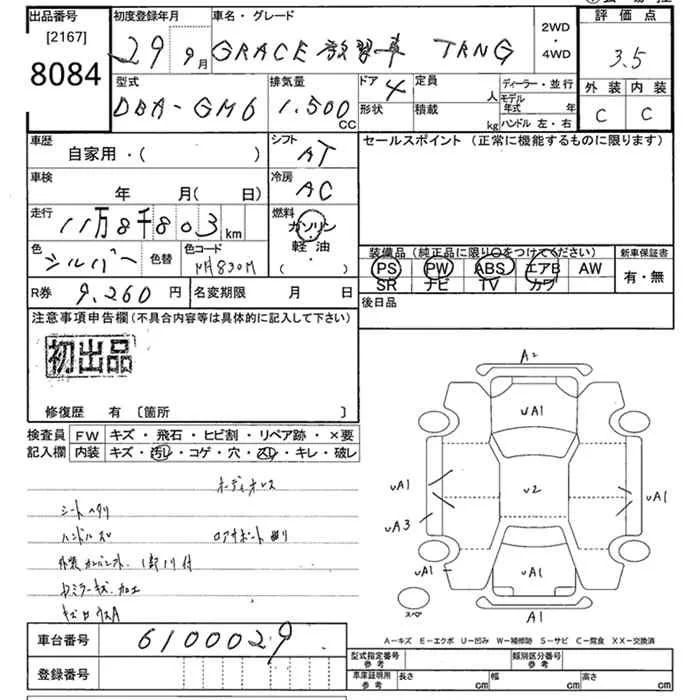 出品番号
[2167]
8084
初度登録年月
29 9月
車名・グレード
GRACE 教習車 TRNG
2WD
・
4WD
評価点
3.5
外装 内装
C C
型式
DBA-GM6
排気量
1.500 CC
ドア 4
形状
定員 人
積載 kg
ディーラー・並行
モデル年式 年
ハンドル 左・右
車歴
自家用・( )
シフト
AT
セールスポイント (正常に機能するものに限ります)
車検
年 月( 日)
冷房
AC
走行
11万8千803 km
燃料
ガソリン
軽油
( )
色
シルバー
色替
色コード
NH830M
装備品 (純正品に限り○をつけてください)
PS PW ABS エアB AW
SR ナビ TV カワ
新車保証書
有・無
R券 9,260 円
名変期限 月 日
後日品
注意事項申告欄 (不具合内容等は具体的に記入して下さい)
初出品
修復歴 有 [箇所 ]
検査員記入欄
FW キズ・飛石・ヒビ割・リペア跡・×要
内装 キズ・汚レ・コゲ・穴・スレ・キレ・破レ
オーディオレス
シートヘタリ
ハンドルスレ
A2
UA1
U2
UA1
UA3
UA1
UA1
UA1
A1
スペア
A-キズ E-エクボ U-凹み W-補修跡 S-サビ C-腐食 XX-交換済
車台番号 6100029
登録番号
型式指定番号 参考
類別区分番号 参考
車庫証明用 参考
長さ cm
幅 cm
高さ cm